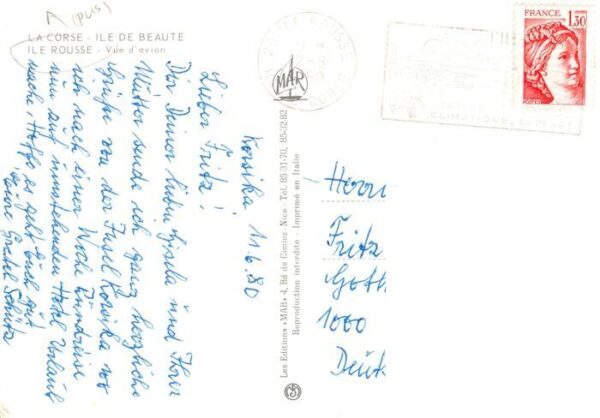 (pus)
LA CORSE - ILE DE BEAUTE
ILE ROUSSE - Vue d'avion
Korsika 11.6.80
Lieber Fritz!
Dir Deiner lieben Gisela und Ihrer
Mutter sende ich ganz herzliche
Grüße von der Insel Korsika wo
ich nach einer Woche Rundreise
nun auf umstehenden Hotel Urlaub
mache, Hoffe es geht Euch gut
Eure Gretel Schütz
MAR
Les Editions «MAR» 4, Bd de Cimiez Nice - Tél. 85 31-70, 85-32-82
Reproduction interdite - Imprimé en Italie
ROUSSE
CORSE
CLIMATIQUE, SA PLAGE
FRANCE
1,30
POSTES
Herrn
Fritz
Goth
1000
Deut